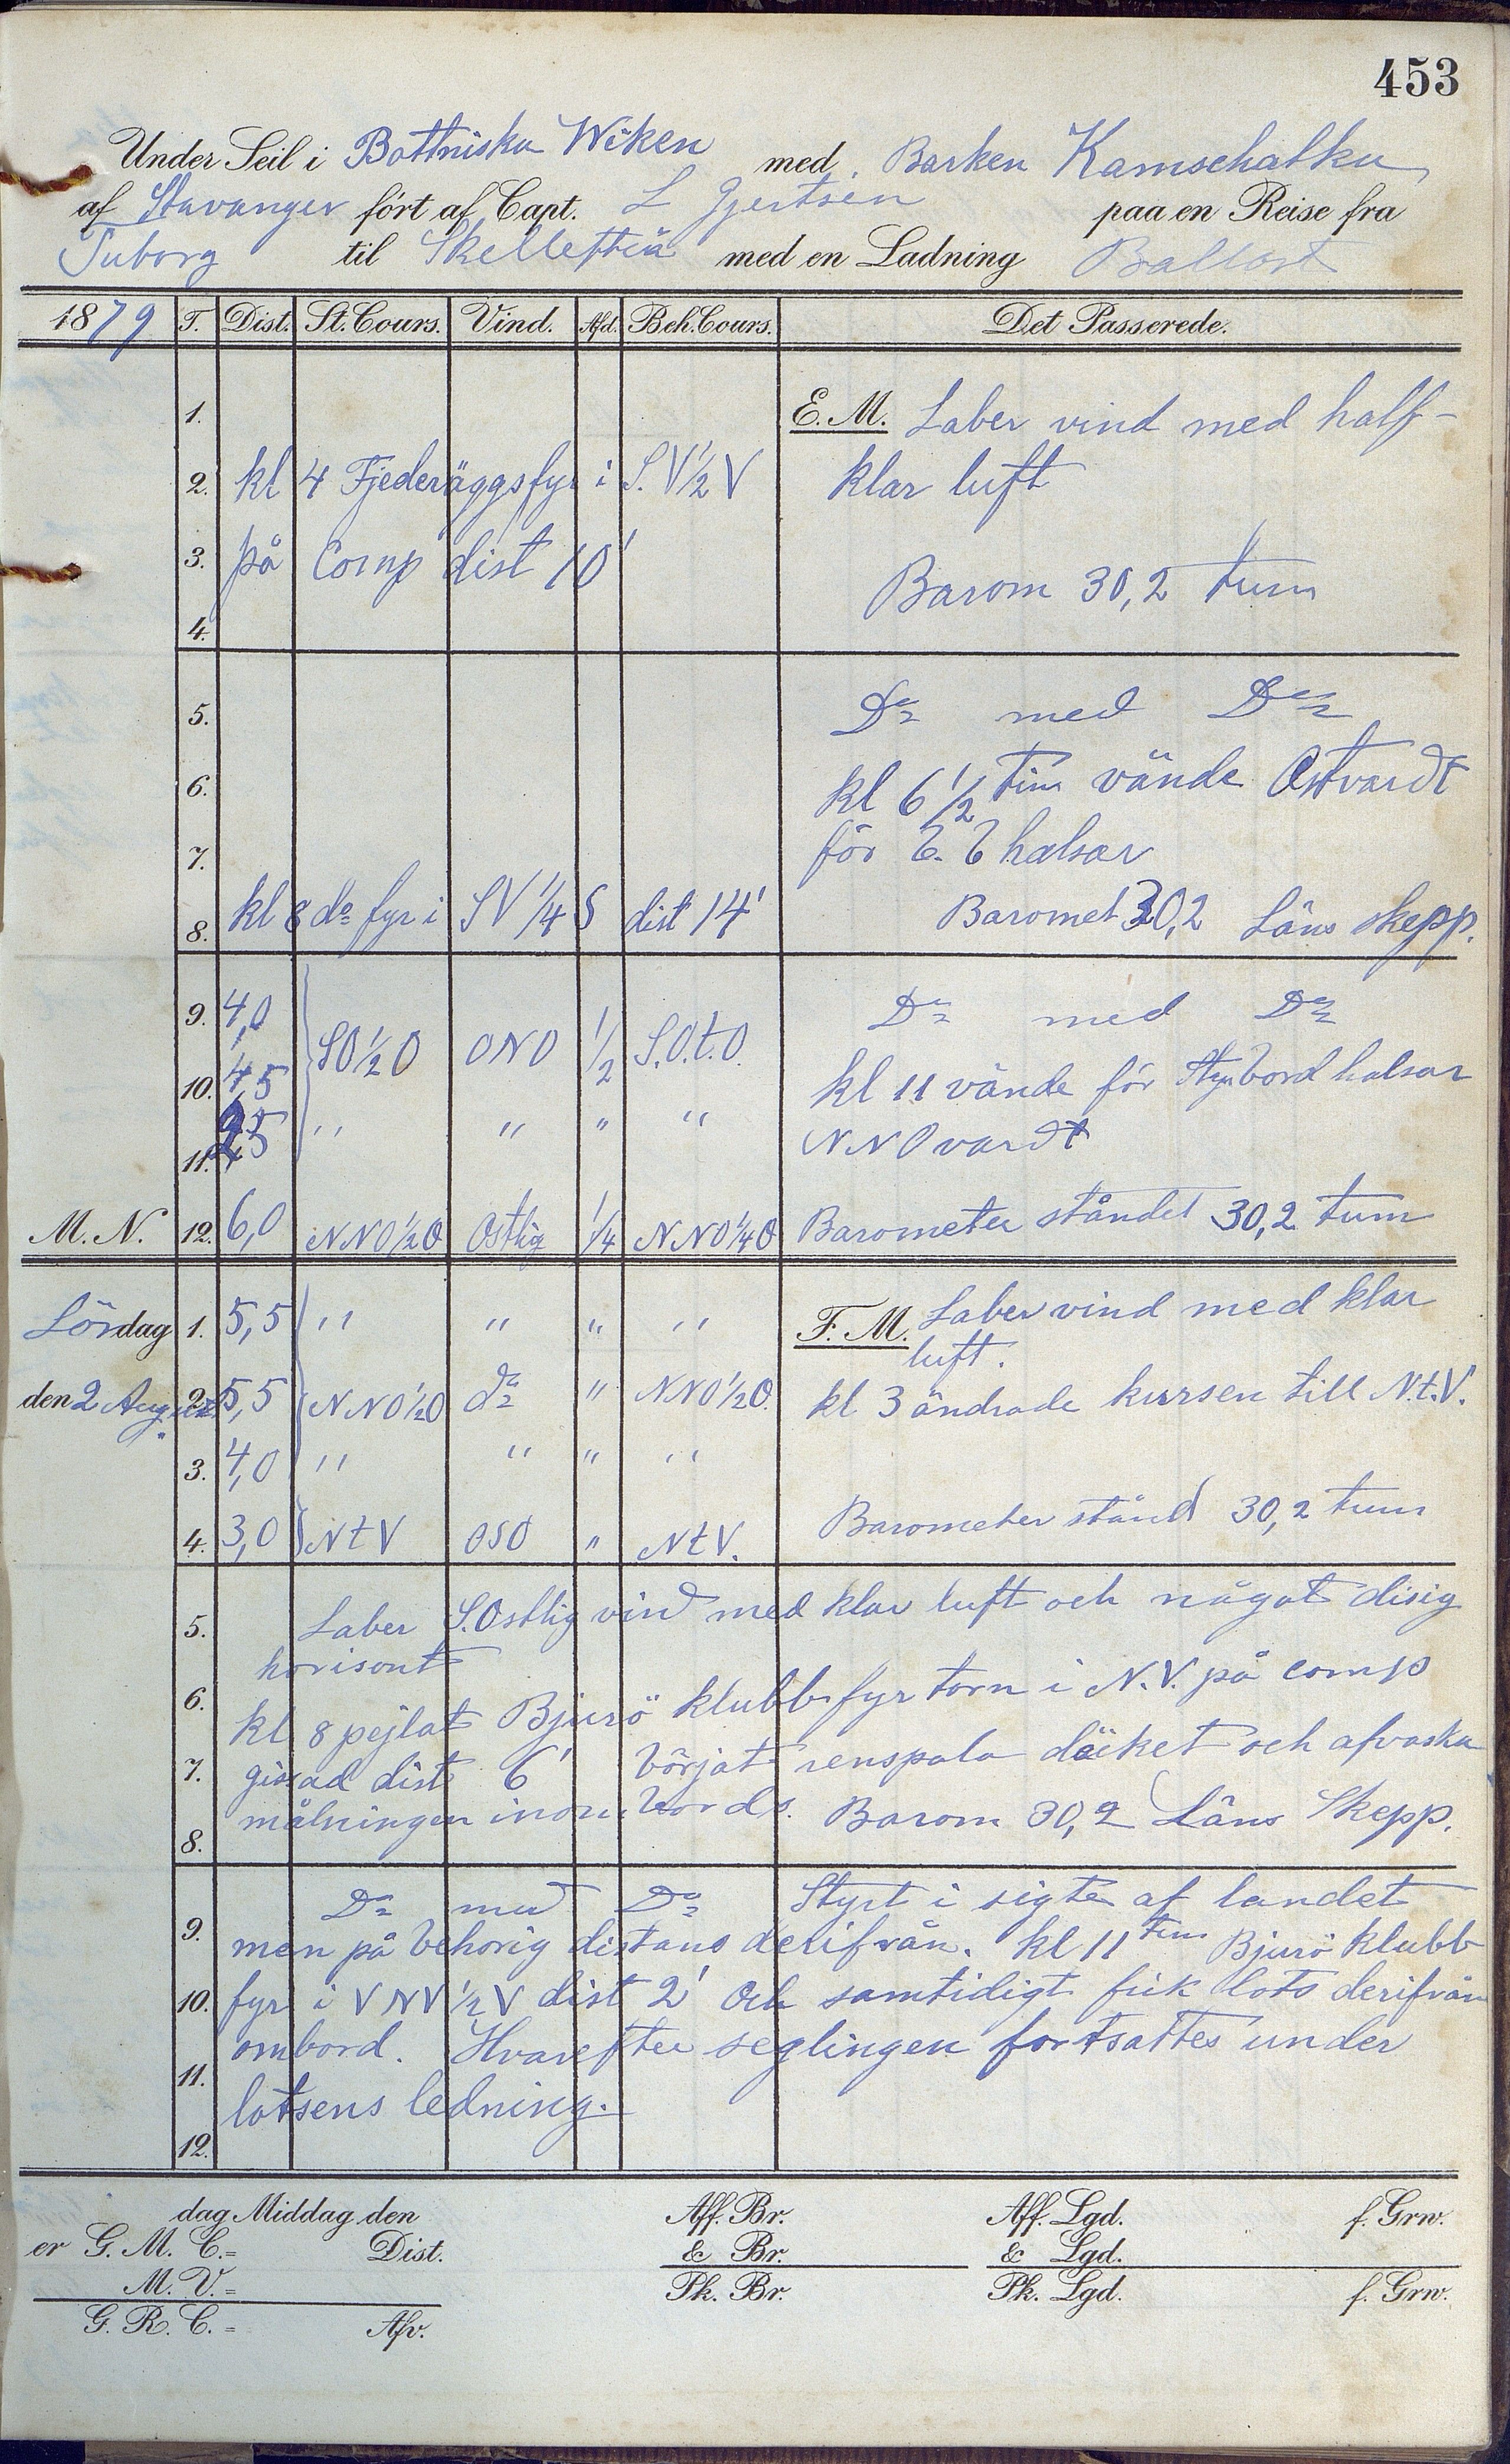 453
Under Seil i Bottniska Wiken med Barken Kamschatka
af Stavanger ført af Capt. L Gjertsen paa en Reise fra
Tuborg til Skellefteå med en Ladning Ballast
1879 T. Dist. St. Cours. Vind. Afd. Beh. Cours. Det Passerede.
1. E. M. Laber vind med half-
2. kl 4 Fjederäggsfyr i S.V 1/2 V klar luft
3. på Comp dist 10' Barom 30,2 tum
4.
5. Do med Do
6. kl 6 1/2 tim vände Ostvardt
7. för B.B halsar
8. kl 8 do fyr i SV 1/4 S dist 14' Baromet 30,2 Läns skepp.
9. 4,0 SO 1/2 O ONO 1/2 S.O.t.O. Do med Do
10. 4,5 kl 11 vände för Styrbord halsar
11. " " " " NNO vardt
M. N. 12. 6,0 NNO 1/2 O Ostlig 1/4 NNO 1/4 O Barometer ståndet 30,2 tum
Lördag 1. 5,5 " " " " F. M. Laber vind med klar
luft.
den 2 August 2. 5,5 NNO 1/2 O do " NNO 1/2 O. kl 3 ändrade kursen till N.t.V.
3. 4,0 " " " "
4. 3,0 NtV OSO " NtV. Barometer stånd 30,2 tum
5. Laber S.Ostlig vind med klar luft och något disig
horisont
6. kl 8 pejlat Bjurö klubb fyrtorn i N.V. på comp
7. gissad dist 6' börjat renspola däcket och afvaska
8. målningen inombords. Barom 30,2 Läns Skepp.
9. Do med Do Styrt i sigte af landet
men på behorig distans derifrån. kl 11 tim Bjurö klubb
10. fyr i VNV 1/2 V dist 2' Och samtidigt fick lots derifrån
ombord. Hvarefter seglingen fortsattes under
11. lotsens ledning.
12.
dag Middag den Aff. Br. Aff. Lgd. f. Grw.
er G. M. C.= Dist. & Br. & Lgd.
M. V.= Pk. Br. Pk. Lgd. f. Grw.
G. R. C.= Afv.